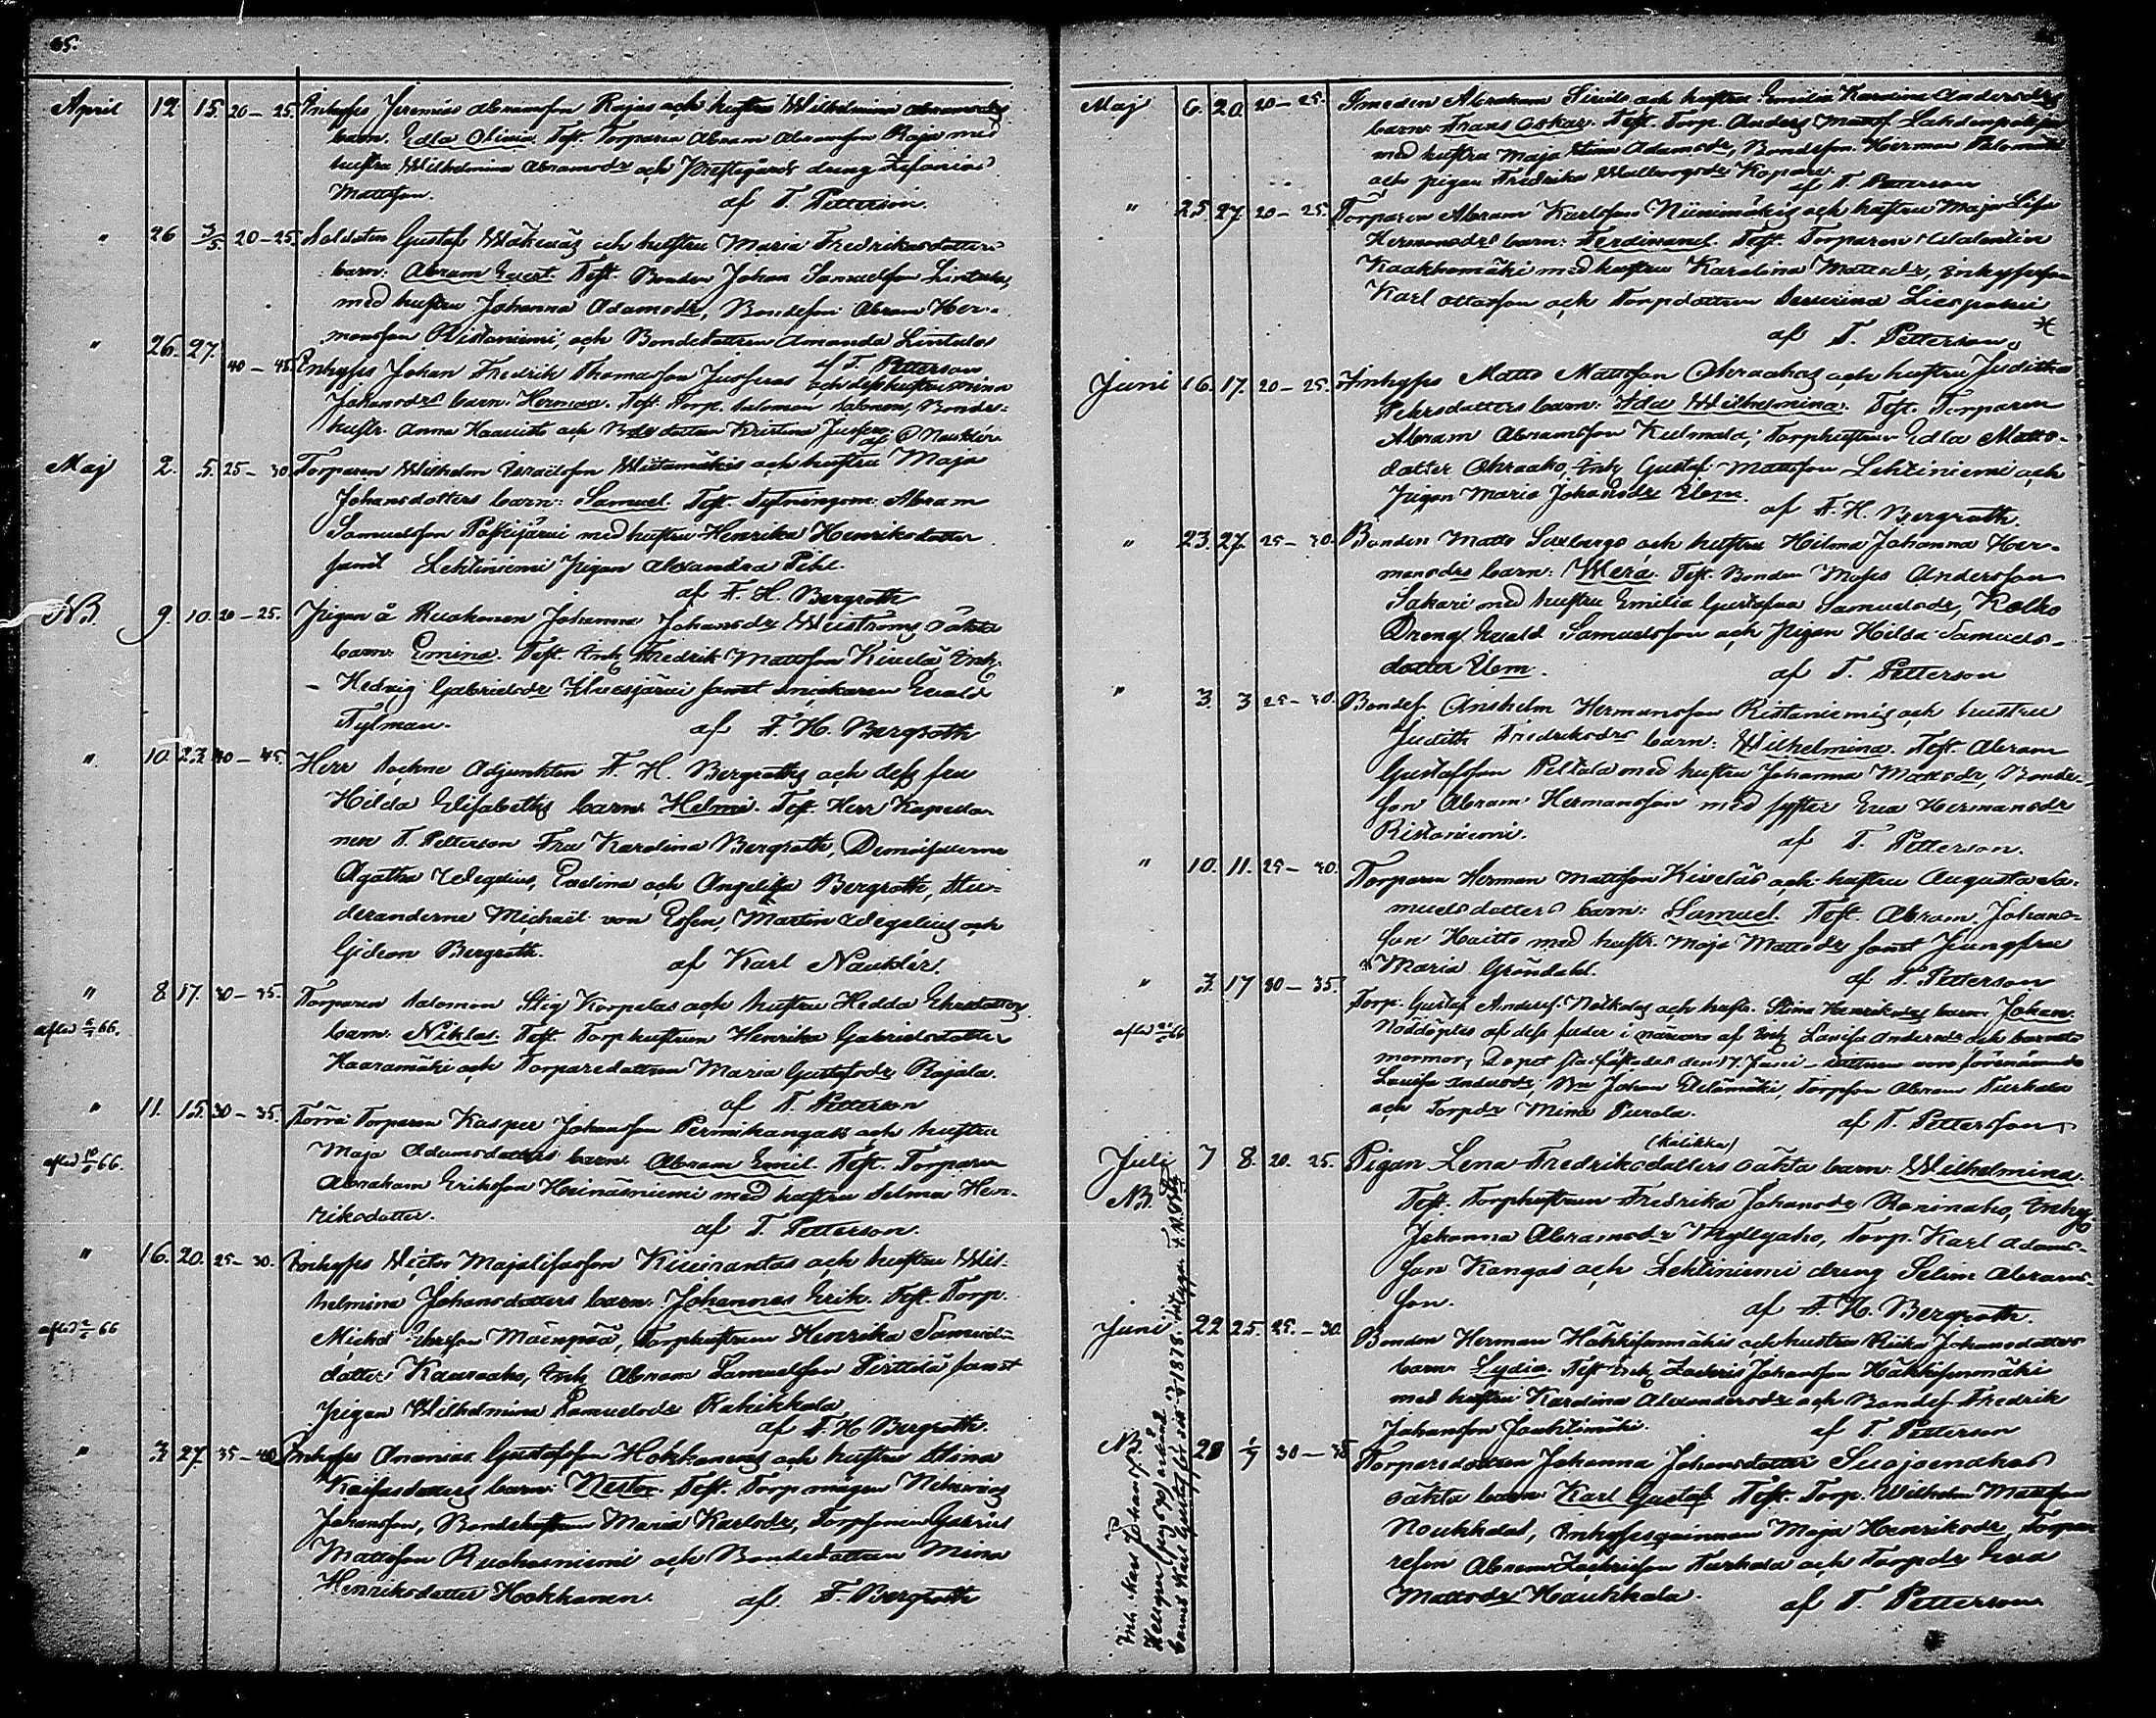 65.
April 12 15. 20 - 25. Inhyses Jeremias Abramsson Rajas och hustru Wilhelmina Abramsdrs
barn: Edla Olivia. Test. Torparen Abram Abramsson Raja med
hustru Wilhelmina Abramsdr och Prestegårds dreng Zefanias
Mattsson. af T. Petterson.
" 26 3/5 20 - 25. Soldaten Gustaf och hustru Maria Fredrikasdotters
barn: Abram Evert. Test. Bonden Johan Samuelsson Lintula,
med hustru Johanna Adamsdr, Bondeson Abram Her-
mansson Ristaniemi, och Bondedottren Amanda Lintula
af T. Petterson
" 26. 27. 40 - 45. Inhyses Johan Fredrik Thomasson och dess hustru Mina
Johansdrs barn: Herman. Test. Torp. Salomon Salonen, Bonde-
hustr. Anna Haavisto och dottren Kristina
af Nauklér
Maj 2. 5. 25 - 30. Torparen Wilhelm Israelsson Wiitamäkis och hustru Maja
Johansdotters barn: Samuel. Test. Abram
Samuelsson med hustru Henrika Henriksdotter
samt Lehtiniemi pigan Alexandra Pihl.
af F. H. Bergroth
NB. 9. 10. 20 - 25. Pigan å Ruokonen Johanna Johansdr oäkta
barn: Emina. Test. Inh. Fredrik Mattsson Kivelä Inh.
Hedvig Gabrielsdr samt snickaren Evald
Nylman. af F. H. Bergroth
" 10. 23. 40 - 45. Herr Sockne Adjunkten F. H. Bergroths och dess fru
Hilda Elisabeths barn: Helmi. Test. Herr Kapella-
nen T. Petterson Fru Karolina Bergroth, Demoisellerna
Agatha Wegelius, Evelina och Angelika Bergroth, Stu-
deranderne Michaël von Essen, Martin Wegelius och
Gideon Bergroth. af Karl Nauklér.
" 8. 17. 30 - 35. Torparen Salomon Stig Korpelas och hustru Hedda
barn: Niklas. Test. Torphustrun Henrika Gabrielsdotter
Haaramäki och Torparedottren Maria Gustafsdr Rajala.
af T. Petterson
" 11. 15. 30 - 35. Förra Torparen Kasper Johansson Permikangas och hustru
Maja Adamsdotters barn: Abram Emil. Test. Torparen
Abraham Eriksson Heinäsniemi med hustru Selma Hen-
riksdotter. af T. Petterson.
" 16. 20. 25 - 30. Inhyses Victor Majalisasson Kiuvirantas och hustru Wil-
helmina Johansdotters barn: Johannes Erik. Test. Torp.
Mickel Mäenpää, Torphustrun Henrika Samuels-
dotter Inh. Abram Samuelsson Pirttilä samt
pigan Wilhelmina Samuelsdr Kahikkala
af F. H. Bergroth.
" 3. 27. 35 - 40. Inhyses Ananias Gustafsson Hokkanens och hustru Stina
Kaisasdotters barn: Nestor. Test. Torpmågen
Johansson, Bondehustrun Maria Karlsdr, Torpsonen Gabriel
Mattsson Ruohoniemi och Bondedottren Mina
Henriksdotter Hokkanen. af F. Bergroth
Maj 6. 20. 20 - 25. Smeden Abraham och hustru Emilia Karolina Andersdrs
barn: Frans Oskar. Test. Torp. Anders
med hustru Maja Stina Adamsdr, Bondeson Herman
och pigan Fredrika Walborgsdr
af T. Petterson
" 25. 27. 20 - 25. Torparen Abram Karlsson Niinimäkis och hustru Maja Lisa
Hermansdrs barn: Ferdinand. Test. Torparen Valentin
Kaakkomäki med hustru Karolina Mattsdr, Inhysesson
Karl Ottosson och Torpdottren Severina
af T. Petterson.
Juni 16. 17. 20 - 25. Inhyses Matts Mattsson Ohraahos och hustru Judith
Pehrsdotters barn: Ida Wilhelmina. Test. Torparen
Abram Abramsson Kulmala, Torphustrun Edla Matts-
dotter Ohraaho, Inh. Gustaf Mattsson Lehtiniemi och
pigan Maria Johansdr Elem.
af F. H. Bergroth.
" 23. 27. 25 - 30. Bonden Matts Saxbergs och hustru Hilma Johanna Her-
mansdrs barn: Wera. Test. Bonden Moses Andersson
Sakari med hustru Emilia Gustafva Samuelsdr, Kolho
Dreng Evald Samuelsson och pigan Hilda Samuels-
dotter Elem. af T. Petterson
" 3. 3 25 - 30. Bondes. Anshelm Hermansson Ristaniemis och hustru
Judith Fredriksdrs barn: Wilhelmina. Test. Abram
Gustafsson Peltola med hustru Johanna Mattsdr, Bonde-
son Abram Hermansson med syster Eva Hermansdr
Ristaniemi. af T. Petterson.
" 10. 11. 25 - 30. Torparen Herman Mattsson Kiveläs och hustru Augusta Sa-
muelsdotters barn: Samuel. Test. Abram Johans-
son Haitto med hustr. Maja Mattsdr samt Jungfru
Maria Gröndahl. af T. Petterson
" 3. 17 30 - 35. Torp. Gustaf Anders. och hustr. Stina Henriksdrs barn: Johan.
Nöddöptes af dess fader i närvaro af Inh. Lovisa Andersdr och barnets
mormor, Dopet stadfästades den 17. Juni - vittnen voro förenämnde
Lovisa Andersdr, Johan Ylilämäki, Torpson Abram Turkala
och Torpdr Mina Turola. af T. Petterson
Juli 7 8. 20. 25. Pigan Lena Fredriksdotters (Kalikka) oäkta barn: Wilhelmina.
NB. Test. Torphustrun Fredrika Johansdr Roninaho, Inhys
Johanna Abramsdr Myllyaho, Torp. Karl Adams-
son Kangas och Lehtiniemi dreng Selim Abrams-
son. af F. H. Bergroth.
Juni 22 25. 25. - 30. Bonden Herman Häkkisenmäkis och hustru Johansdotters
barn: Lydia. Test. Inh. Zackris Johansson Häkkisenmäki
med hustru Karolina Alexandersdr och Bondes. Fredrik
Johansson af T. Petterson
NB. 28 1/7 30 - 35 Torparedottren Johanna Johansdotter
oäkta barn: Karl Gustaf. Test. Torp. Wilhelm Mattsson
Noukkala, Inhysesqvinnan Maja Henriksdr, Torpa-
reson Abram Zackrisson Turkala och Torpdr Eva
Mattsdr Haukkala. af T. Petterson